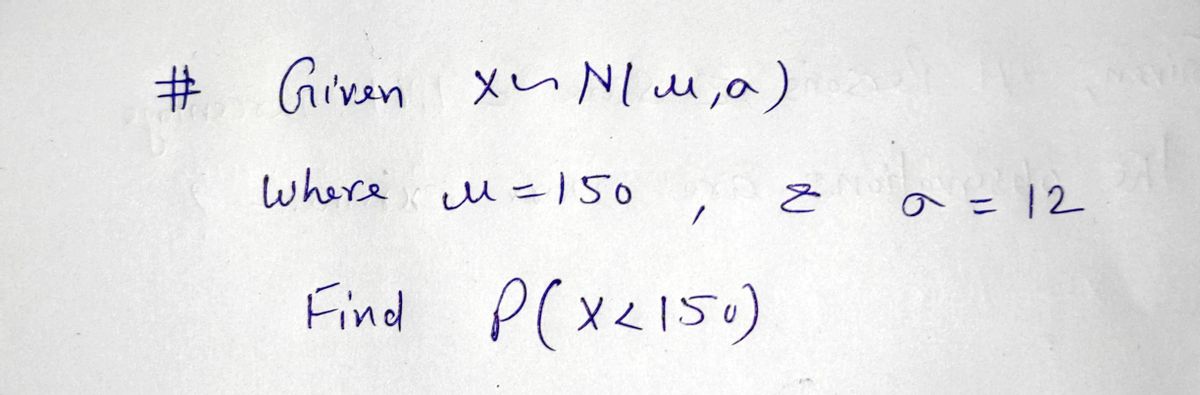 # Given X ~ N(μ, σ)
where μ = 150, & σ = 12
Find P(X < 150)